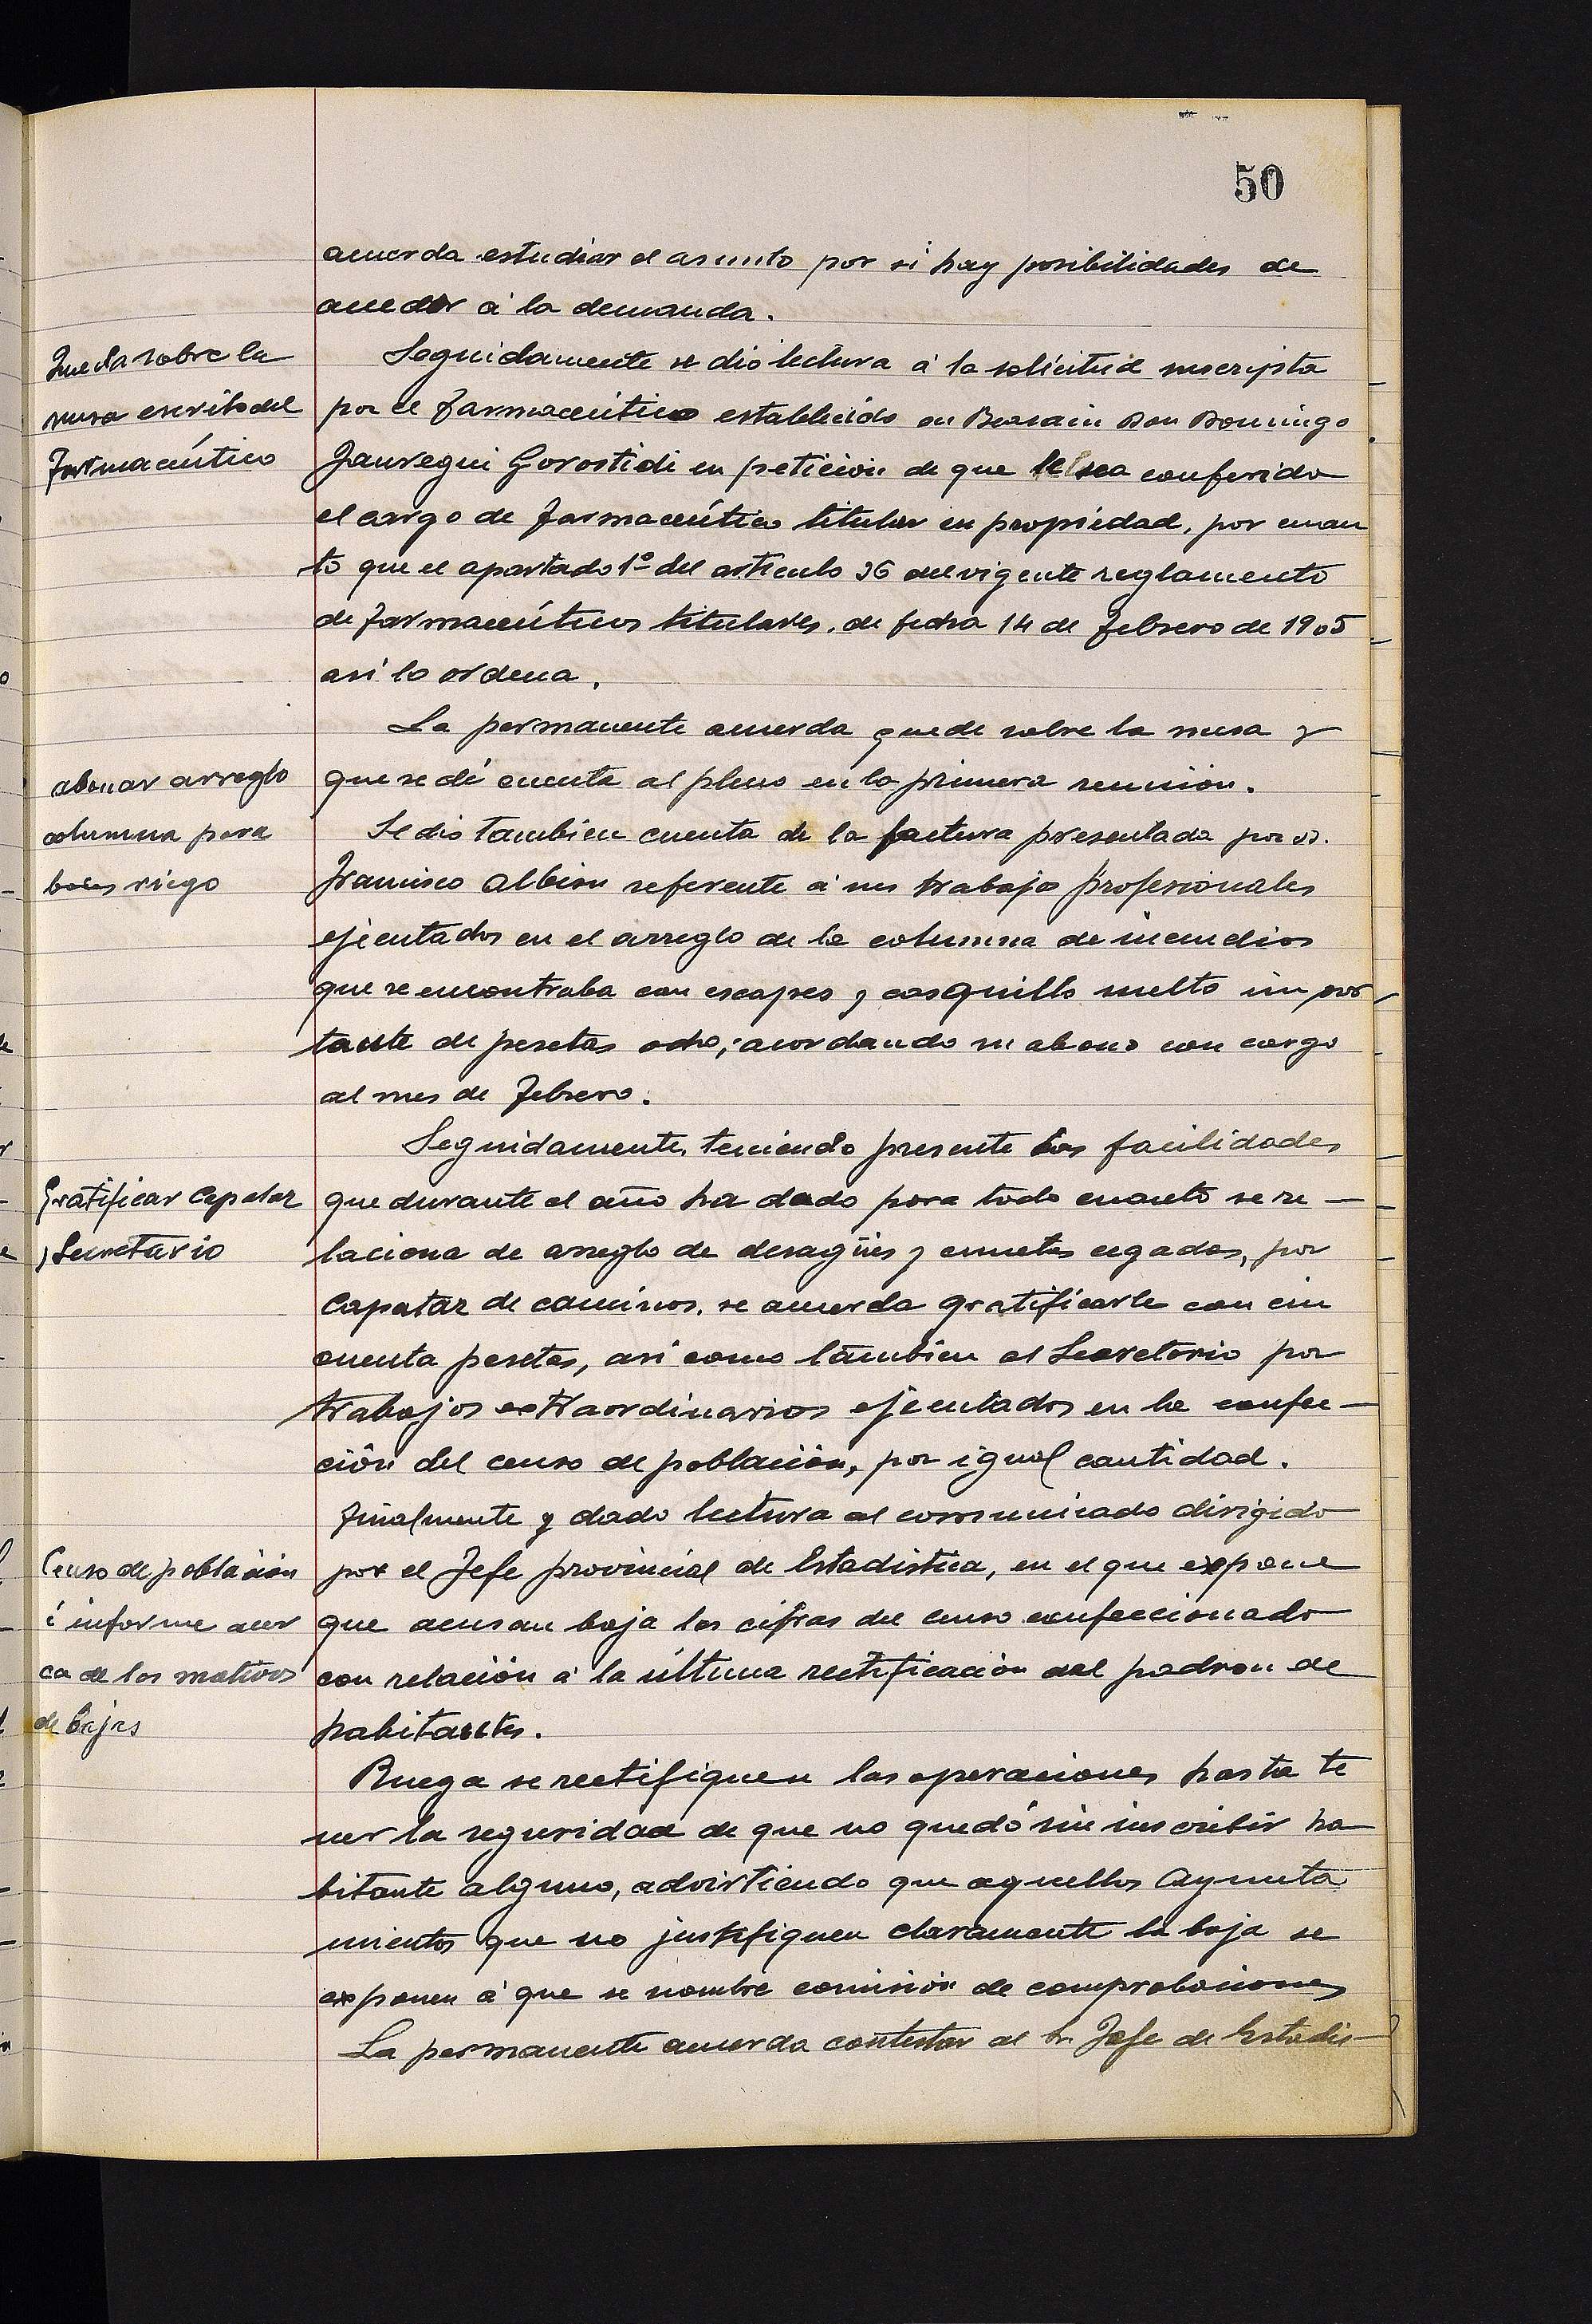 50
acuerda estudiar el asunto por si hay posibilidades de
acceder á la demanda.
Queda sobre la
mesa escrito del
Farmacéutico
Seguidamente se dió lectura á la solicitud suscripta
por el farmacéutico establecido en Beasain Don Domingo
Jauregui Gorostidi en petición de que le sea conferido
el cargo de farmacéutico titular en propiedad, por cuan
to que el apartado 1º del artículo 36 del vigente reglamento
de farmacéuticos titulares, de fecha 14 de Febrero de 1905
así lo ordena.
La permanente acuerda quede sobre la mesa y
que se dé cuenta al pleno en la primera reunión.
abonar arreglo
columna para
bocas riego
Se dio tambien cuenta de la factura presentada por D.
Francisco Albisu referente á sus trabajo profesionales
ejecutados en el arreglo de la columna de incendios
que se encontraba con escapes y casquillo suelto impor
tante de pesetas ocho; acordando su abono con cargo
al mes de Febrero.
Gratificar Capataz
y Secretario
Seguidamente, teniendo presente las facilidades
que durante el año ha dado para todo cuanto se re-
laciona de arreglo de desagües y cunetas cegadas, por
Capataz de caminos, se acuerda gratificarle con cin
cuenta pesetas, así como tambien al Secretario por
trabajos extraordinarios ejecutados en la confec-
ción del censo de población, por igual cantidad.
Censo de población
é informe acer
ca de los motivos
de bajas
Finalmente y dado lectura al comunicado dirigido
por el Jefe provincial de Estadística, en el que expone
que acusan baja las cifras del censo confeccionado
con relación á la última rectificación del padron de
habitantes.
Ruega se rectifiquen las operaciones hasta te
ner la seguridad de que no quedó sin inscribir ha
bitante alguno, advirtiendo que aquellos Ayunta
mientos que no justifiquen claramente la baja se
exponen á que se nombre comisión de comprobaciones
La permanente acuerda contestar al Sr. Jefe de Estadis-